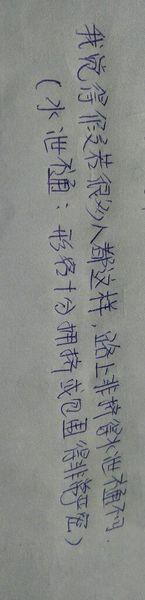 我觉得假若很多人都这样，路上非挤得水泄不通不可.
(水泄不通：形容十分拥挤或包围得非常严密)